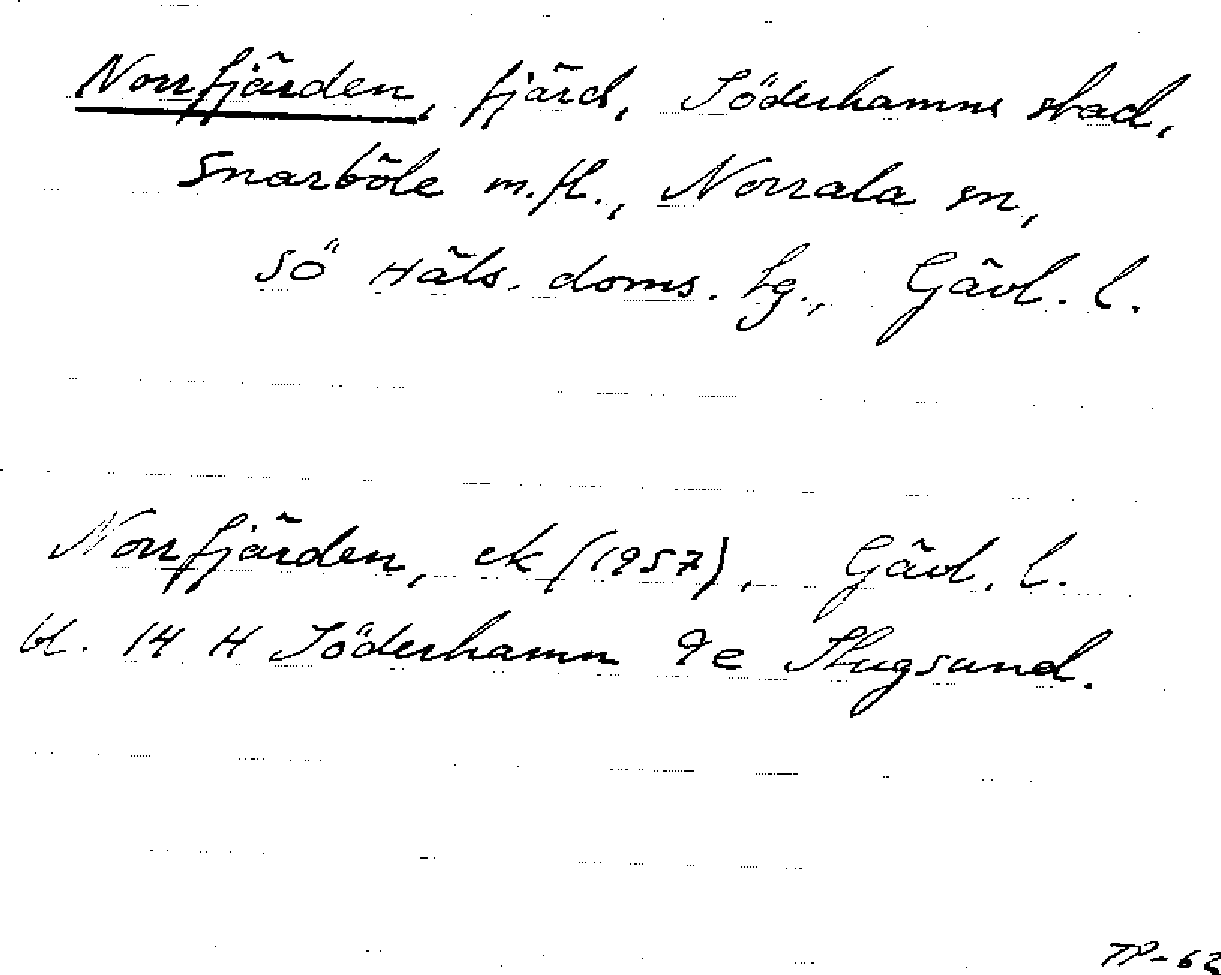 Norrfjärden, fjärd, Söderhamns stad,
Snarböle m.fl., Norrala sn,
Sö Häls. doms. lg., Gävl. l.
Norrfjärden, ek (1957), Gävl. l.
bl. 14 H Söderhamn 9e Stugsund.
TP-62